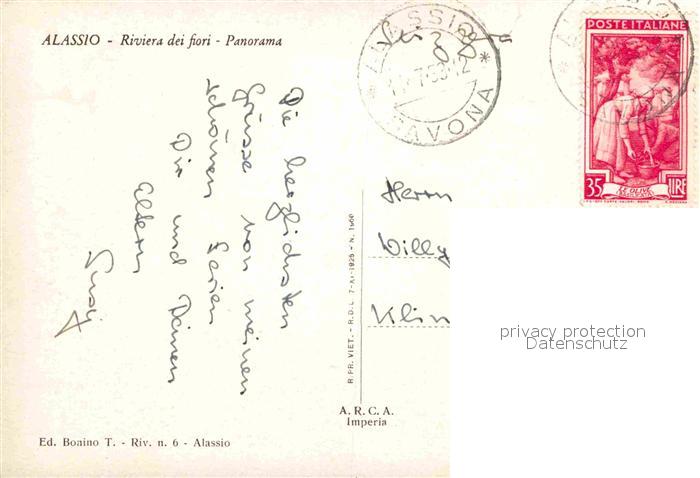 ALASSIO - Riviera dei fiori - Panorama
Die herzlichsten
Grüsse von meinen
schönen Ferien
Dir und Deinen
Eltern
Susi
Herrn
Willy
Klin
RIPR. VIET. - R.D.L. 7-XI-1925 - N. 1950
A. R. C. A.
Imperia
Ed. Bonino T. - Riv. n. 6 - Alassio
ALASSIO
SAVONA
POSTE ITALIANE
35 LE OLIVE LIRE
privacy protection
Datenschutz